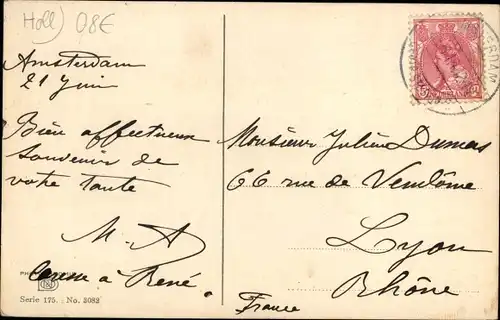 Holl) 08E
Amsterdam
21 Juin
Bien affectueux
souvenir de
votre tante
M. A
à René.
Serie 175. No. 3082
Monsieur Julien Dumas
66 rue de Vendôme
Lyon
Rhône
France